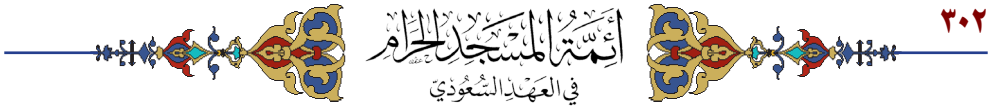 ٣٠٢
أَئِمَّةُ المَسْجِدِ الحَرَامِ
في العَهْدِ السُّعُودِيّ